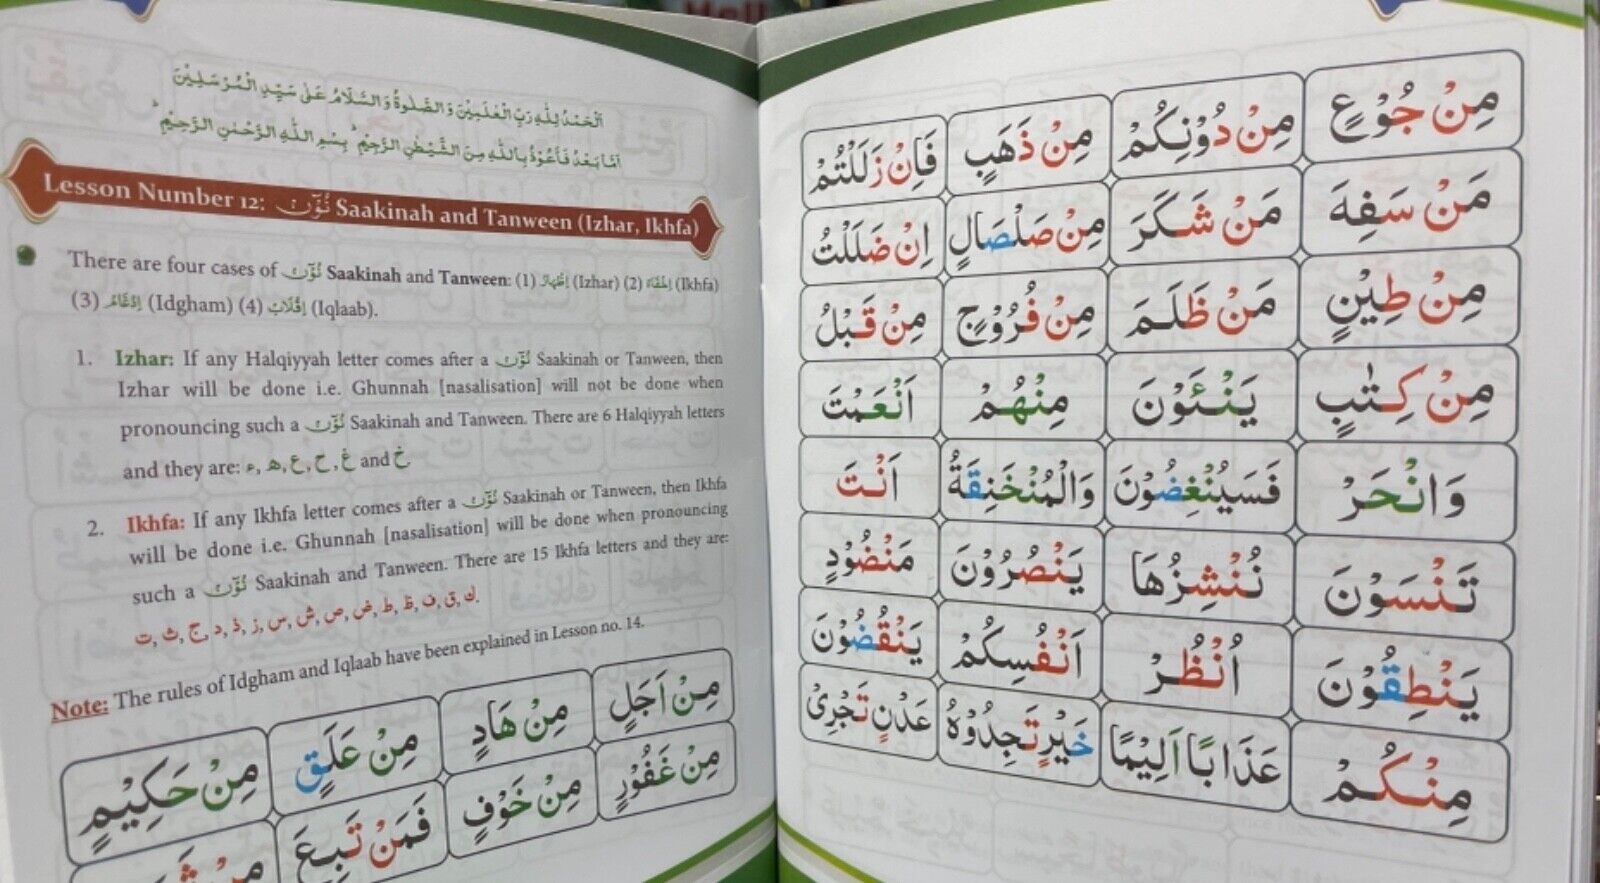 اَلْحَمْدُ لِلّٰهِ رَبِّ الْعٰلَمِيْنَ وَ الصَّلٰوةُ وَ السَّلَامُ عَلٰى سَيِّدِ الْمُرْسَلِيْنَ
اَمَّا بَعْدُ فَاَعُوْذُ بِاللّٰهِ مِنَ الشَّيْطٰنِ الرَّجِيْمِ ؕ بِسْمِ اللّٰهِ الرَّحْمٰنِ الرَّحِيْمِ ؕ
Lesson Number 12: نُوْن Saakinah and Tanween (Izhar, Ikhfa)
There are four cases of نُوْن Saakinah and Tanween: (1) اِظْهَار (Izhar) (2) اِخْفَاء (Ikhfa)
(3) اِدْغَام (Idgham) (4) اِقْلَاب (Iqlaab).
1. Izhar: If any Halqiyyah letter comes after a نُوْن Saakinah or Tanween, then
Izhar will be done i.e. Ghunnah [nasalisation] will not be done when
pronouncing such a نُوْن Saakinah and Tanween. There are 6 Halqiyyah letters
and they are: ء, ھ, ع, ح, غ and خ
2. Ikhfa: If any Ikhfa letter comes after a نُوْن Saakinah or Tanween, then Ikhfa
will be done i.e. Ghunnah [nasalisation] will be done when pronouncing
such a نُوْن Saakinah and Tanween. There are 15 Ikhfa letters and they are:
ت, ث, ج, د, ذ, ز, س, ش, ص, ض, ط, ظ, ف, ق, ك.
Note: The rules of Idgham and Iqlaab have been explained in Lesson no. 14.
مِنْ اَجَلٍ مِنْ هَادٍ مِنْ عَلَقٍ مِنْ حَكِيْمٍ
مِنْ غَفُوْرٍ مِنْ خَوْفٍ فَمَنْ تَبِعَ
مِنْ جُوْعٍ مِنْ دُوْنِكُمْ مِنْ ذَهَبٍ فَاِنْ زَلَلْتُمْ
مَنْ سَفِهَ مَنْ شَكَرَ مِنْ صَلْصَالٍ اِنْ ضَلَلْتُ
مِنْ طِيْنٍ مَنْ ظَلَمَ مِنْ فُرُوْجٍ مِنْ قَبْلُ
مِنْ كِتٰبٍ يَنْـَٔوْنَ مِنْهُمْ اَنْعَمْتَ
وَانْحَرْ فَسَيُنْغِضُوْنَ وَالْمُنْخَنِقَةُ اَنْتَ
تَنْسَوْنَ نُنْشِزُهَا يَنْصُرُوْنَ مَنْضُوْدٍ
يَنْطِقُوْنَ اُنْظُرْ اَنْفُسِكُمْ يَنْقُضُوْنَ
مِنْكُمْ عَذَابًا اَلِيْمًا خَيْرٍ تَجِدُوْهُ عَدْنٍ تَجْرِىْ